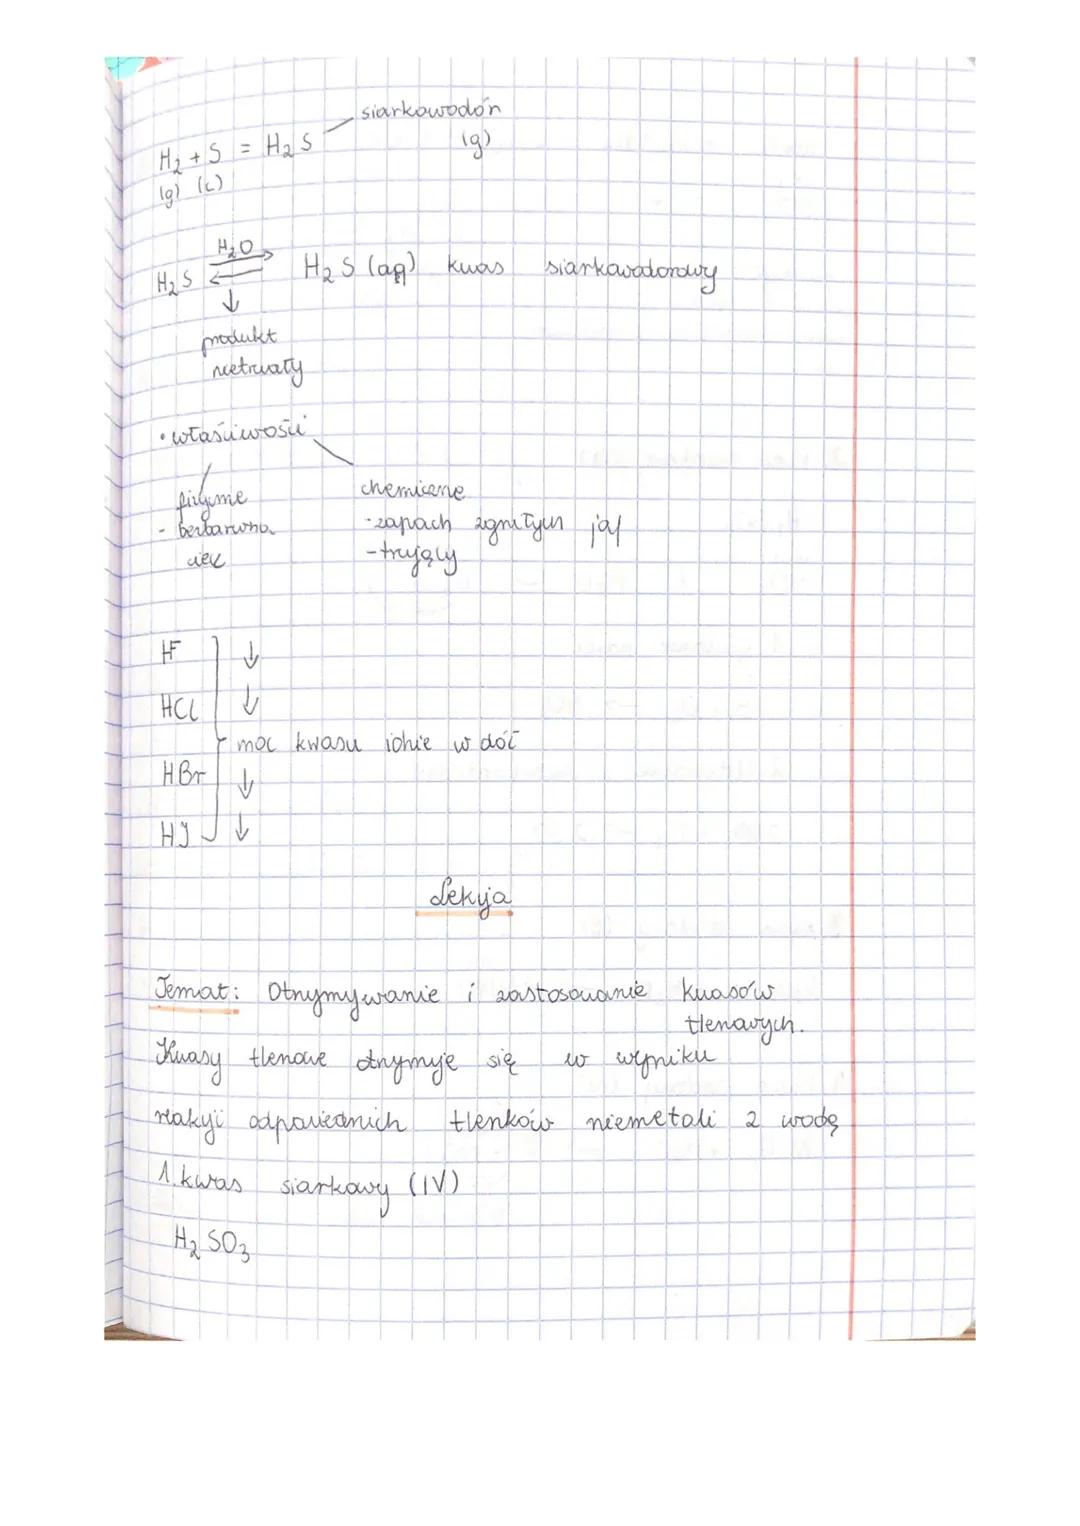 siarkowodór
H₂ + S = H₂S (g)
(g) (c)
H₂S ⇄ H₂O H₂S (aq) kwas siarkowodorowy
↓
produkt
nietrwały
• właściwości
fizyczne
- bezbarwna
ciecz
chemiczne
- zapach zgniłych jaj
- trujący
HF ↓
HCl ↓
moc kwasu idzie w dół
HBr ↓
HJ ↓
Lekcja
Temat: Otrzymywanie i zastosowanie kwasów
tlenowych.
Kwasy tlenowe otrzymuje się w wyniku
reakcji odpowiednich tlenków niemetali z wodą
1. kwas siarkowy (IV)
H₂SO₃